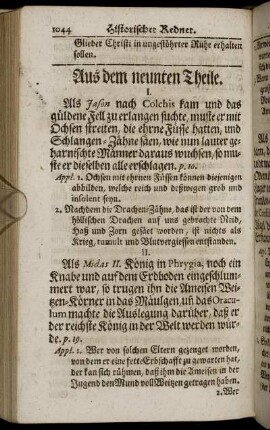 1044 Historischer Redner.
Glieder Christi in ungestöhrter Ruhe erhalten
sollen.
Aus dem neunten Theile.
I.
Als Jason nach Colchis kam und das
güldene Fell zu erlangen suchte, muste er mit
Ochsen streiten, die ehrne Füsse hatten, und
Schlangen-Zähne säen, wie nun lauter ge-
harnischte Männer daraus wuchsen, so mu-
ste er dieselben alle erschlagen. p. 10.
Appl. 1. Ochsen mit ehenen Füssen können diejenigen
abbilden, welche reich und deßwegen grob und
insolent seyn.
2. Nachdem die Drachen-Zähne, das ist der von dem
höllischen Drachen auf uns gebrachte Neid,
Haß und Zorn gesäet worden, ist nichts als
Krieg, tumult und Blutvergiessen entstanden.
II.
Als Midas II. König in Phrygia, noch ein
Knabe und auf dem Erdboden eingeschlum-
mert war, so trugen ihn die Ameisen Wei-
tzen-Körner in das Mäulgen, uñ das Oracu-
lum machte die Auslegung darüber, daß er
der reichste König in der Welt werden wür-
de. p. 19.
Appl. 1. Wer von solchen Eltern gezeuget worden,
von dem er eine fette Erbschafft zu gewarten hat,
der kan sich rühmen, daß ihm die Ameisen in der
Jugend den Mund voll Weitzen getragen haben.
2. Wer